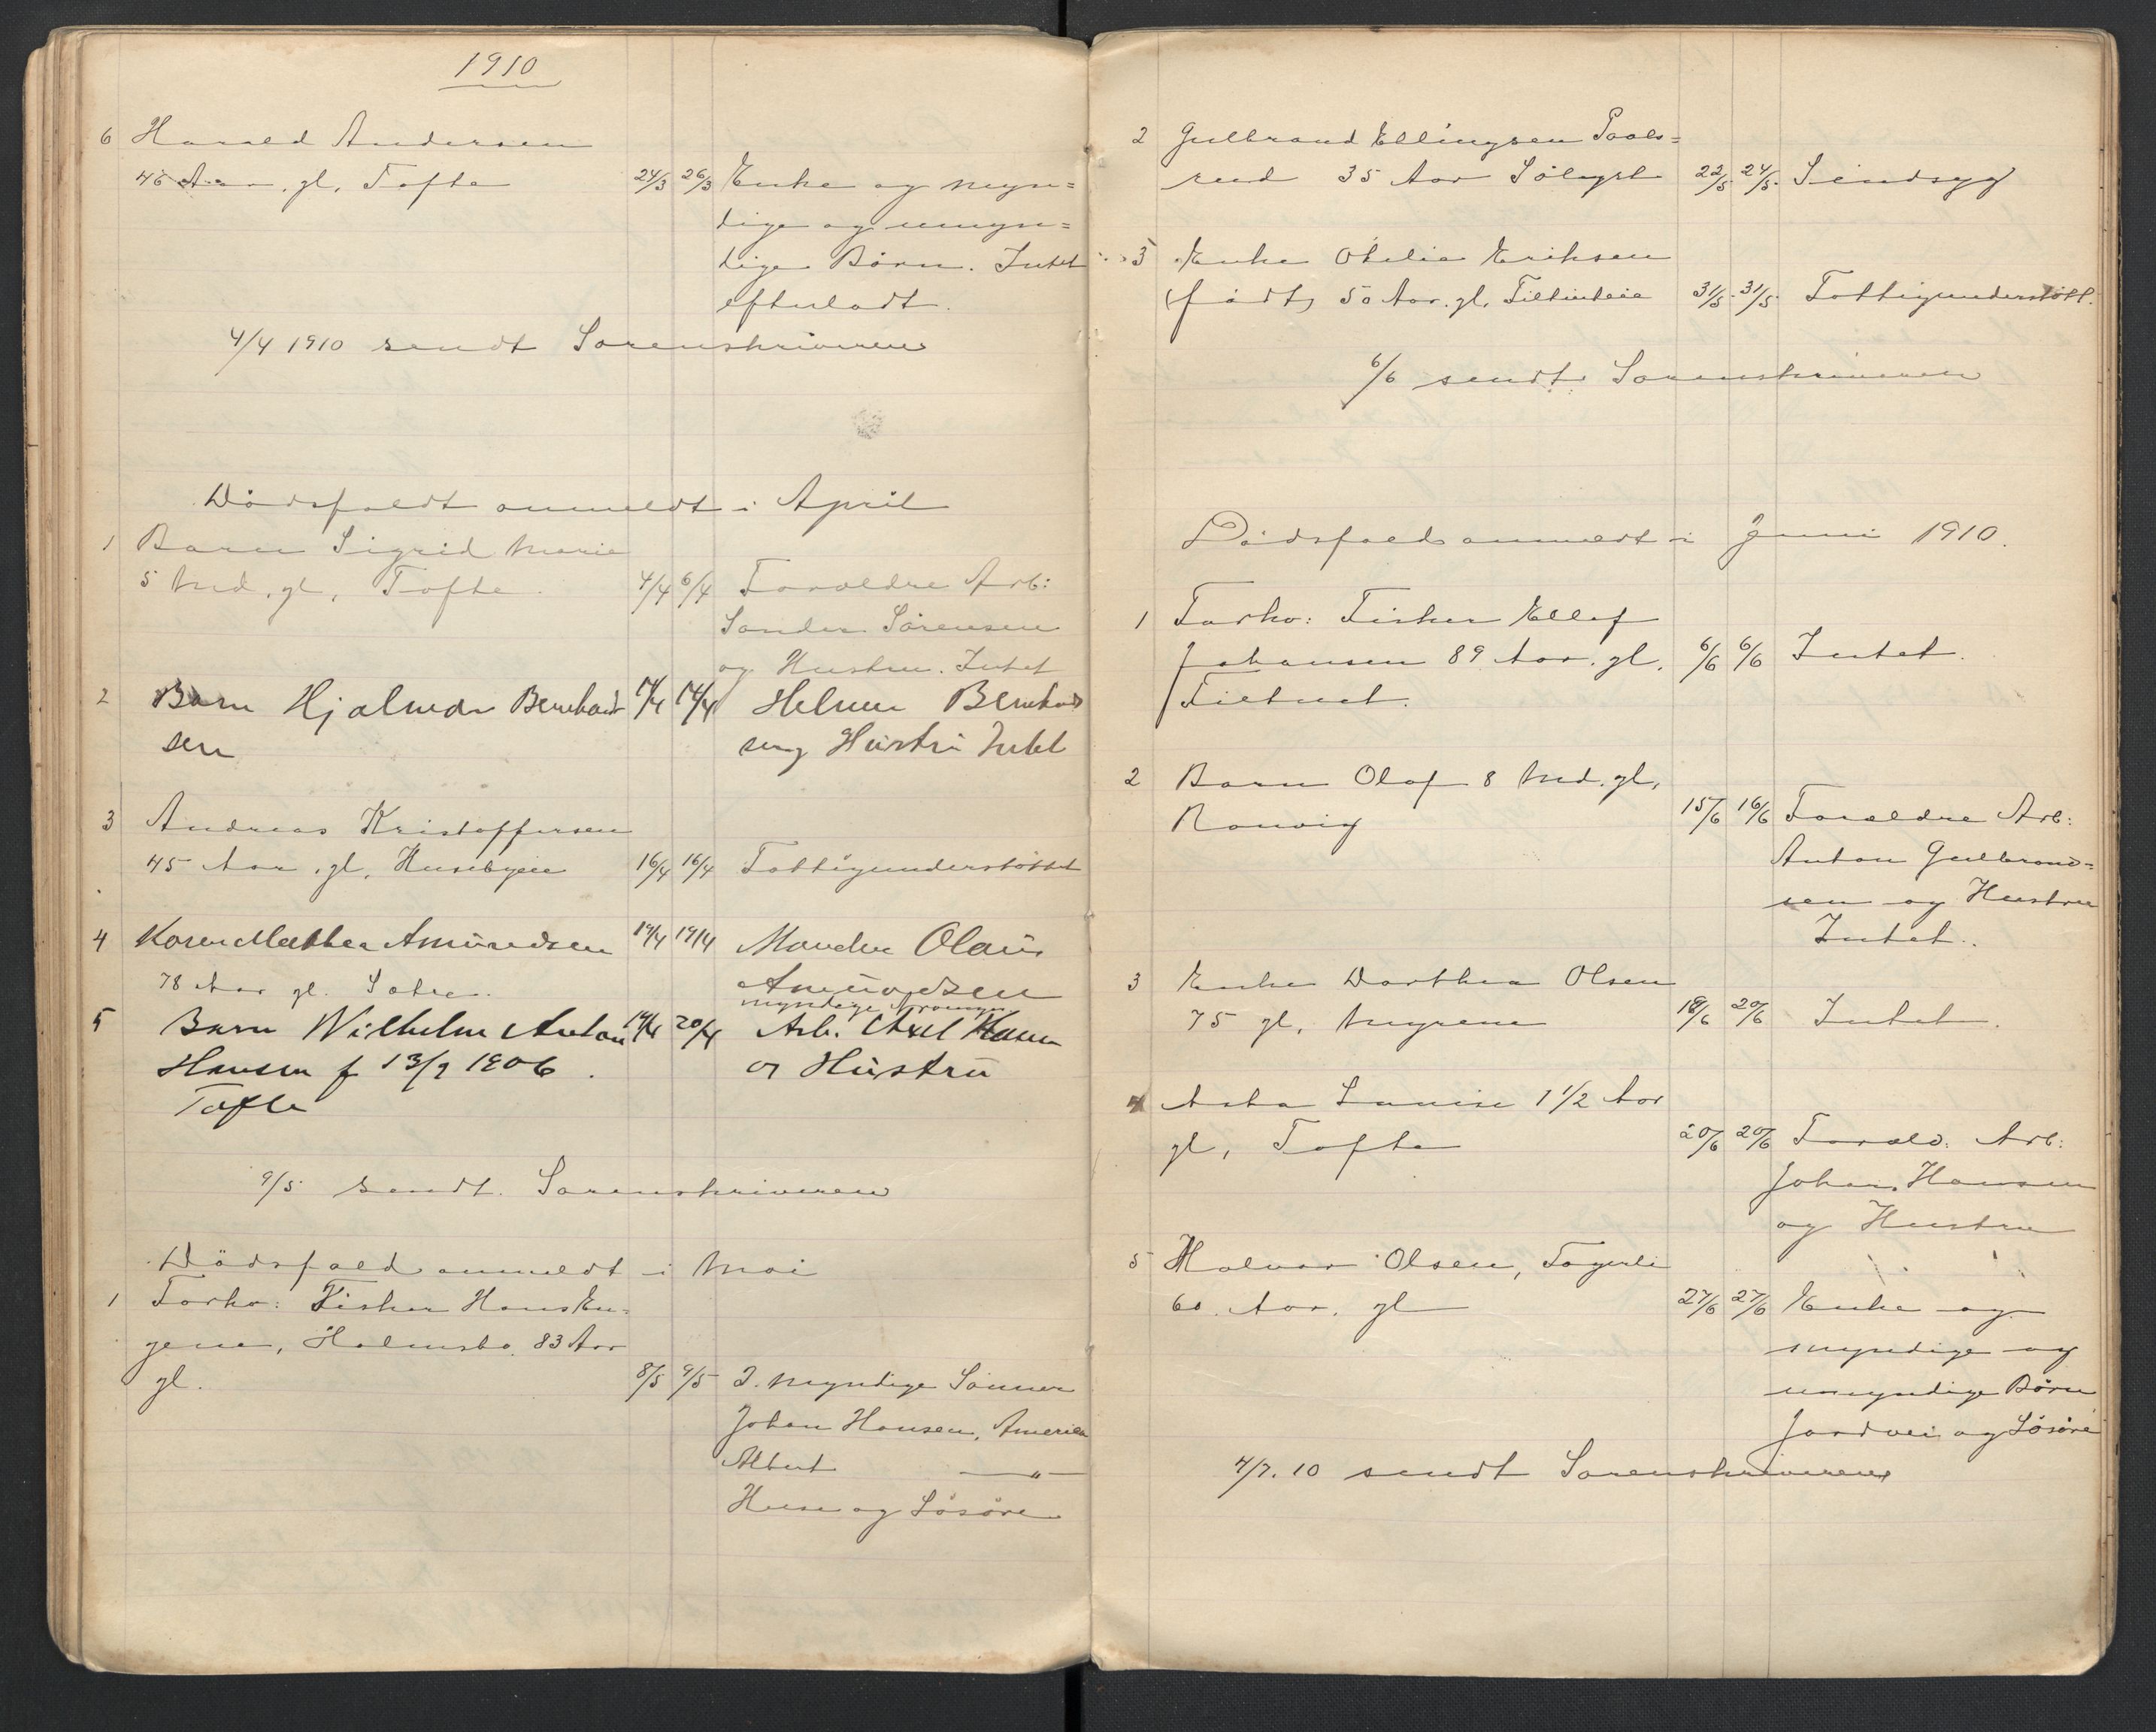 1910
6 Harald Andersen
46 Aar. gl, Tofte 24/3 26/3 Enke og myn=
dige og umyn=
dige Börn. Intet
efterladt.
4/4 1910 sendt Sorenskriveren
Dödsfaldt anmeldt i April
1 Barn Sigrid Marie
5 Md. gl, Tofte. 4/4 6/4 Foraldre Arb:
Sander Sörensen
og Hustru. Intet
2 Barn Hjalmar Bernhard 14/4 Helmer Bernhard
sen Hustru Intet
3 Andreas Kristoffersen
45 Aar. gl, Husebyeie 16/4 16/4 Fattigunderstöttet
4 Karen Mathea Amundsen 19/4 19/4 Olaus
78 Aar gl. Sætre. Amundsen
myndige
5 Barn Wilhelm Anton 20/4 Arb. Axel Hansen
Hansen f 13/9 1906. og Hüstrü
Tofte
9/5 sendt. Sorenskriveren
Dödsfald anmeldt i Mai
1 Forhv: Fisker Hans En-
gene, Holmsbo. 83 Aar
gl. 8/5 9/5 2. myndige Sönner
Johan Hansen, America
Albert —"—
Huse og Lösöre
2 Gulbrand Ellingsen Paals=
rud 35 Aar Sölgyst 22/5. 24/5. Sindsyg
3 Enke Otelia Eriksen
(födt) 50 Aar. gl, Filtineie 31/5. 31/5. Fattigunderstött.
6/6 sendt Sorenskriveren
Dödsfald anmeldt i Juni 1910.
1 Forhv: Fisker Ellef
Johansen 89 Aar. gl. 6/6 6/6 Intet.
Filtvet.
2 Barn Olaf 8 Md. gl,
Ranvig 15/6 16/6 Foraldre Arb:
Anton Gulbrand=
sen og Hustru
Intet.
3 Enke Dorthea Olsen
75 gl, Myrene 18/6 20/6 Intet.
4 Asta Lovise 1 1/2 Aar
gl, Tofte 20/6 20/6 Forald: Arb:
Johan Hansen
og Hustru
5 Halvor Olsen, Fagerli
60. Aar. gl 27/6 27/6 Enke og
myndige og
umyndige Börn
Jordvei og Lösöre
4/7. 10 sendt Sorenskriveren